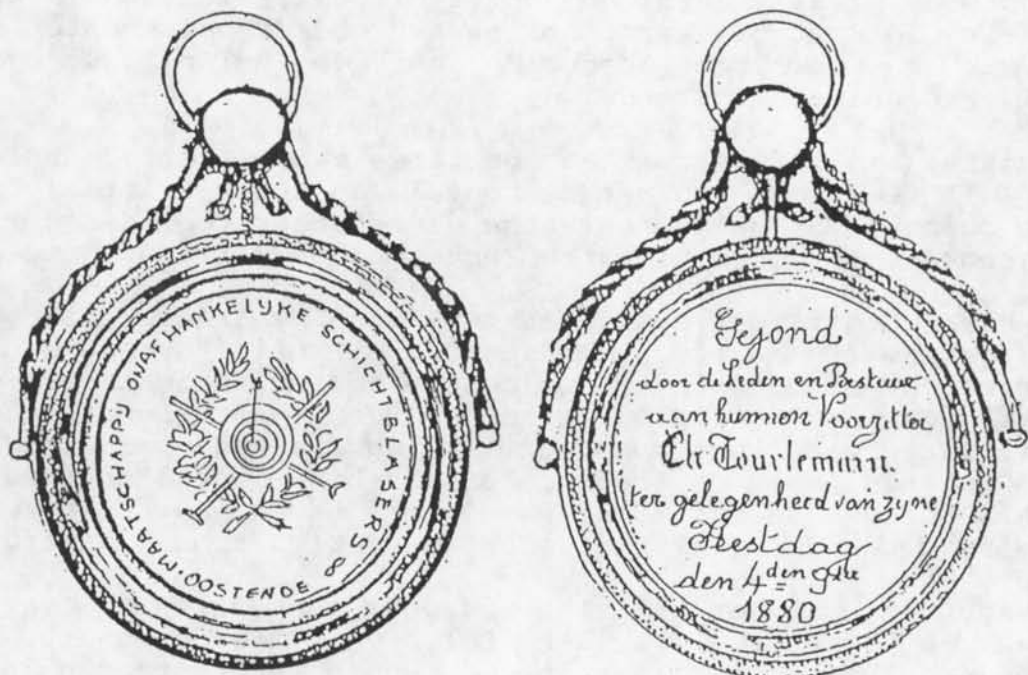 MAATSCHAPPIJ ONAFHANKELYKE SCHICHT BLASERS
OOSTENDE
Gejond
door de Leden en Bestuur
aan hunnen Voorzitter
Tourlemain
ter gelegenheid van zyne
Feestdag
den 4den 9bre
1880